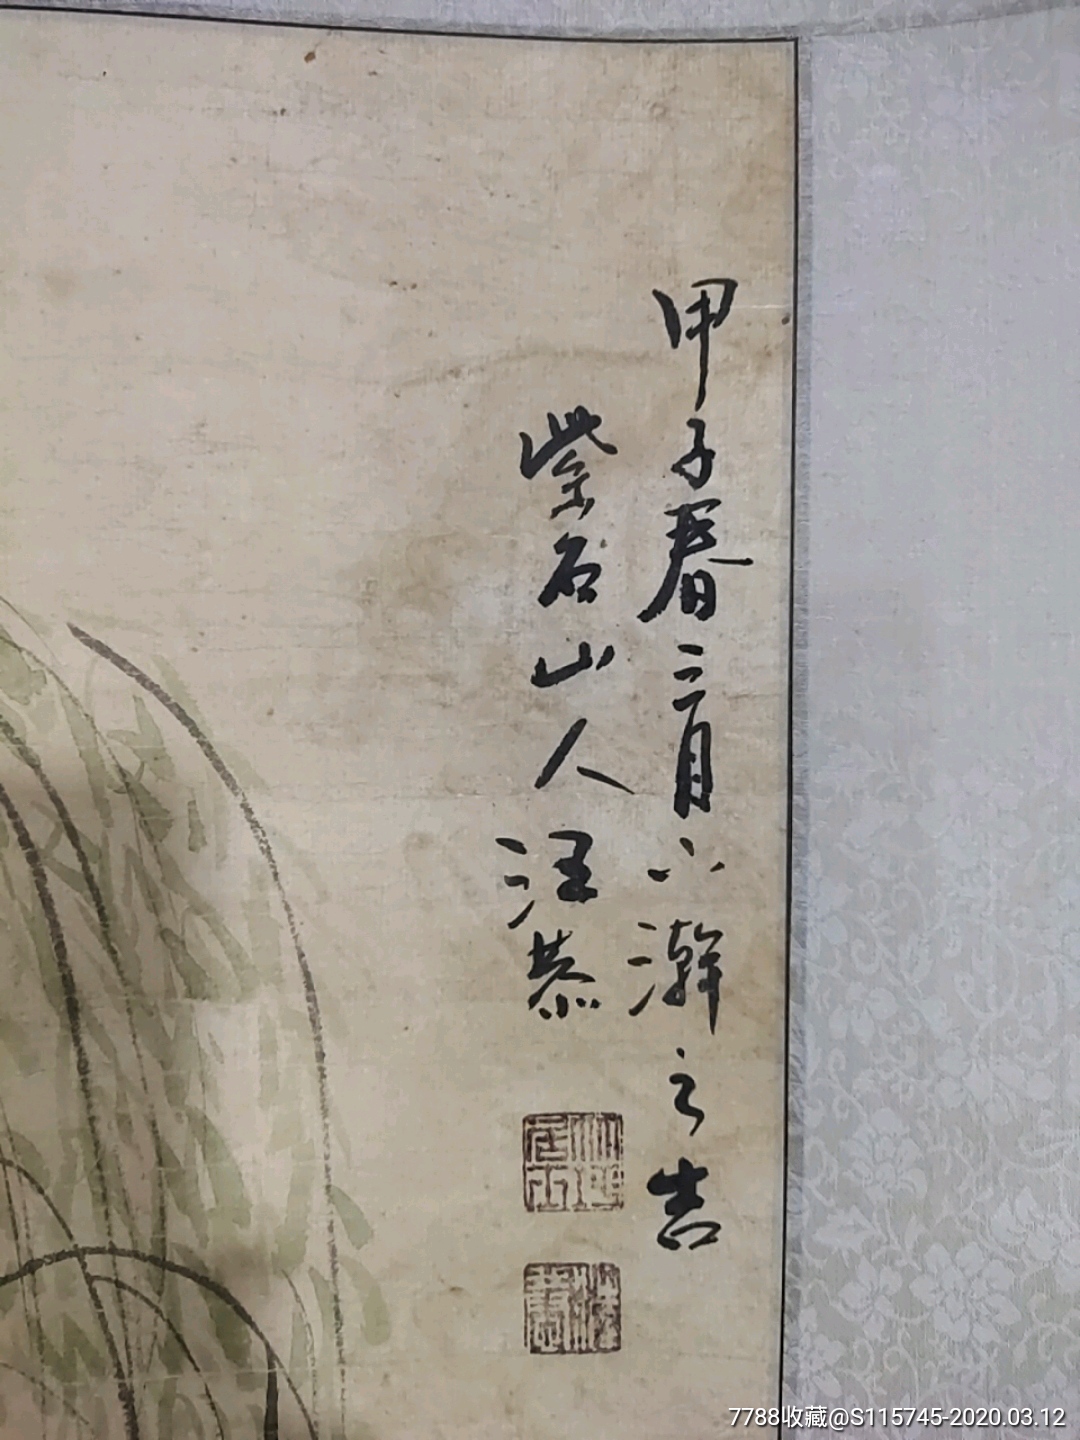 甲子春二月下澣之吉
紫石山人汪恭
7788收藏@S115745-2020.03.12